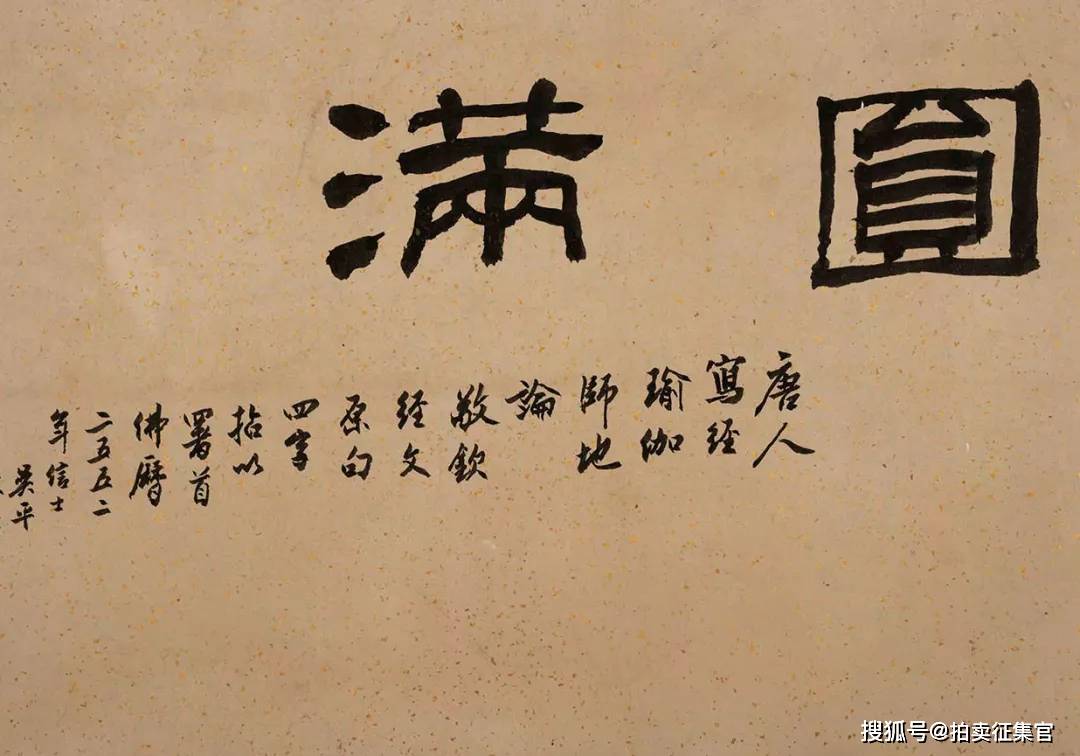 圓滿
唐人
寫經
瑜伽
師地
論
敬欽
经文
原句
四字
拈以
署首
佛曆
二五五二
年信士
吴平
搜狐号@拍卖征集官